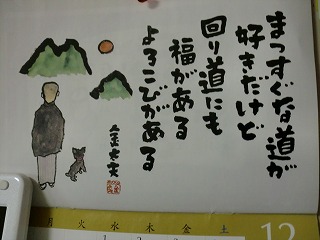 まっすぐな道が
好きだけど
回り道にも
福がある
よろこびがある
月 火 水 木 金 土
12